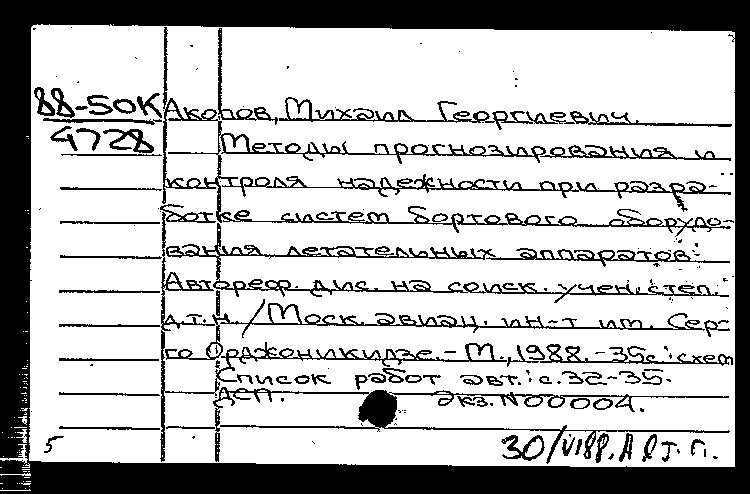 88-50К Акопов, Михаил Георгиевич.
4728 Методы прогнозирования и
контроля надежности при разра-
ботке систем бортового оборудо-
вания летательных аппаратов:
Автореф. дис. на соиск. учен. степ.
д.т.н. /Моск. авиац. ин-т им. Сер-
го Орджоникидзе. - М., 1988. - 35с.: схем
Список работ авт.: с.32-35.
ДСП. Экз. N00004.
5 30/VI88.